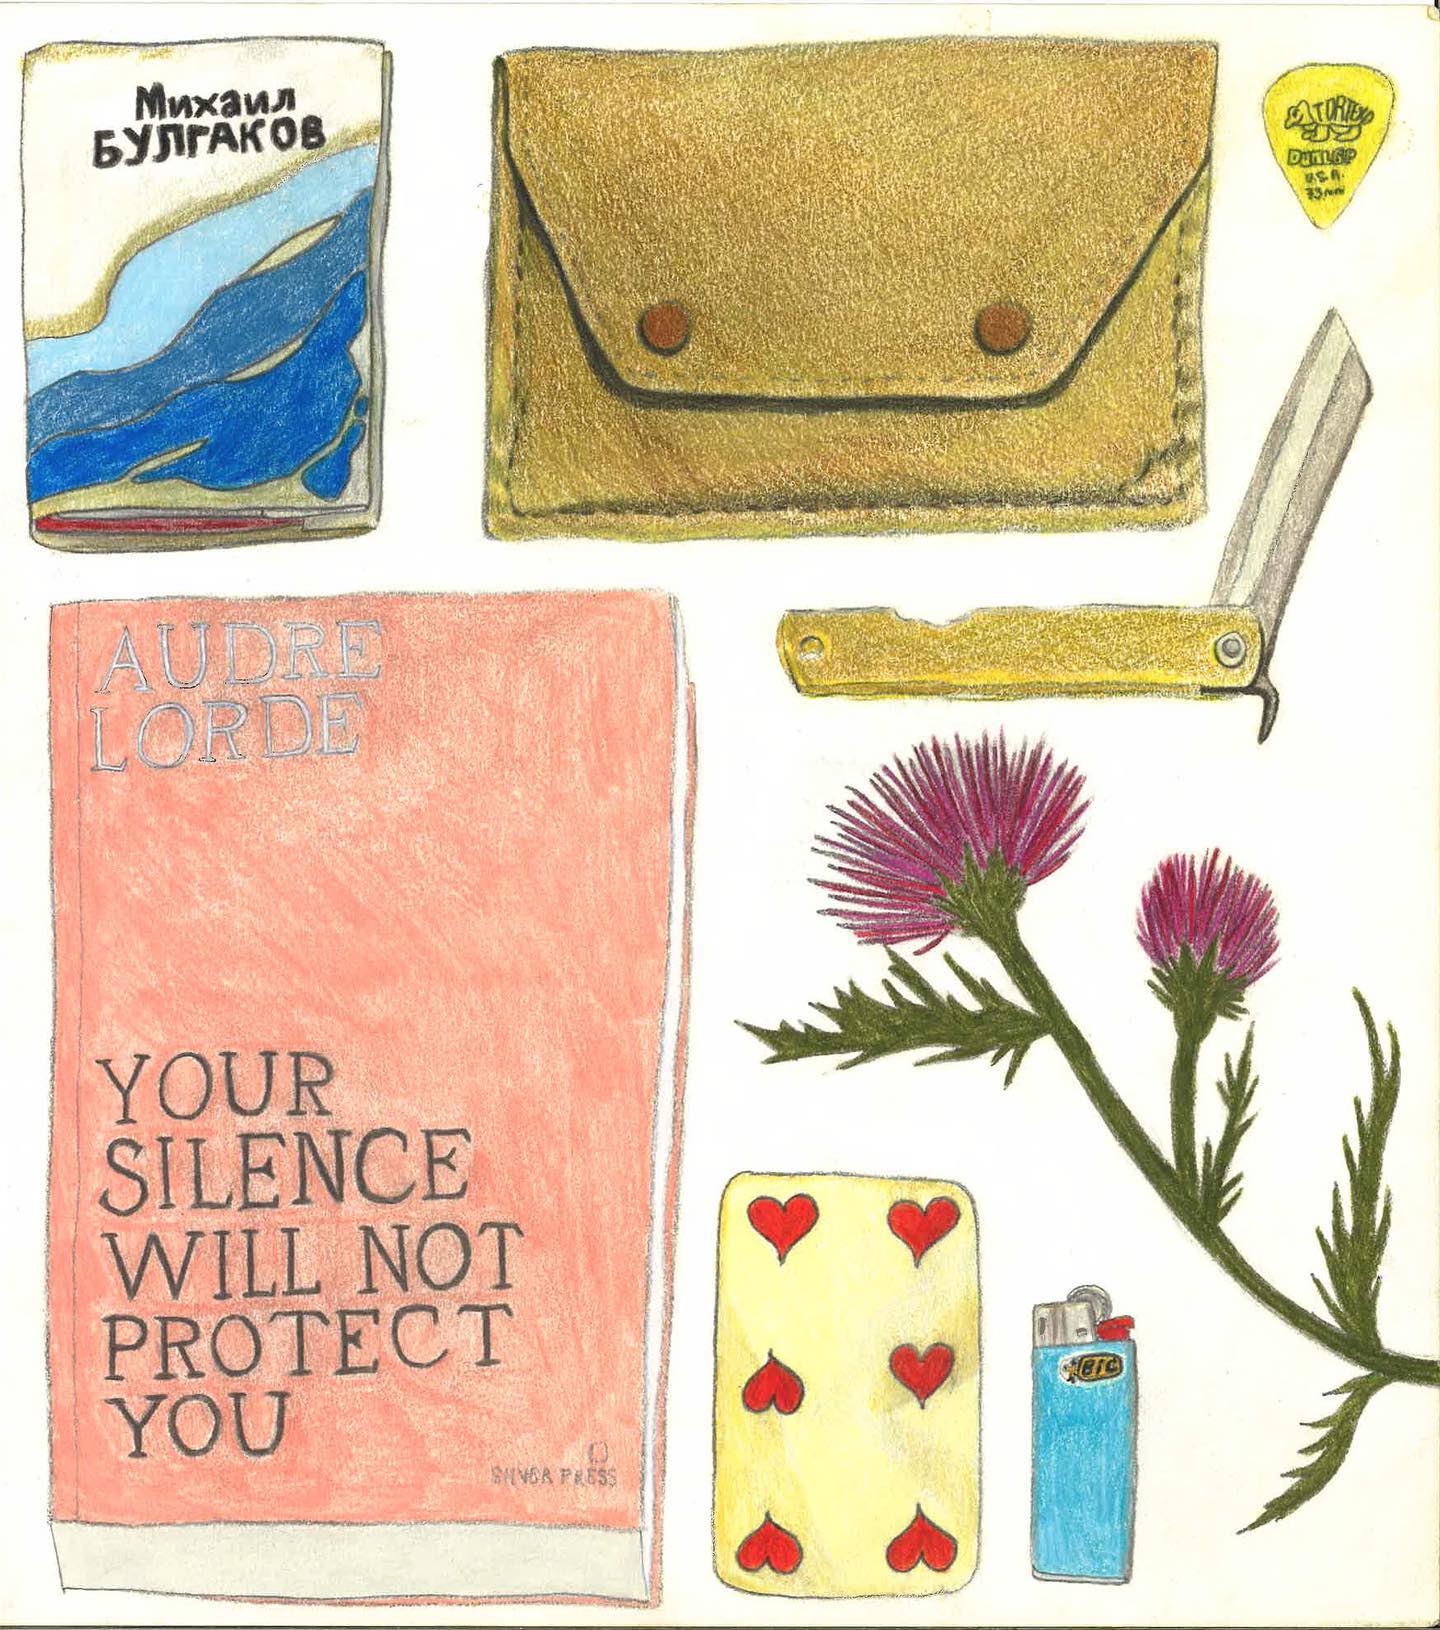 Михаил
БУЛГАКОВ
TORTEX
DUNLOP
U.S.A.
.73mm
AUDRE
LORDE
YOUR
SILENCE
WILL NOT
PROTECT
YOU
SILVER PRESS
BIC